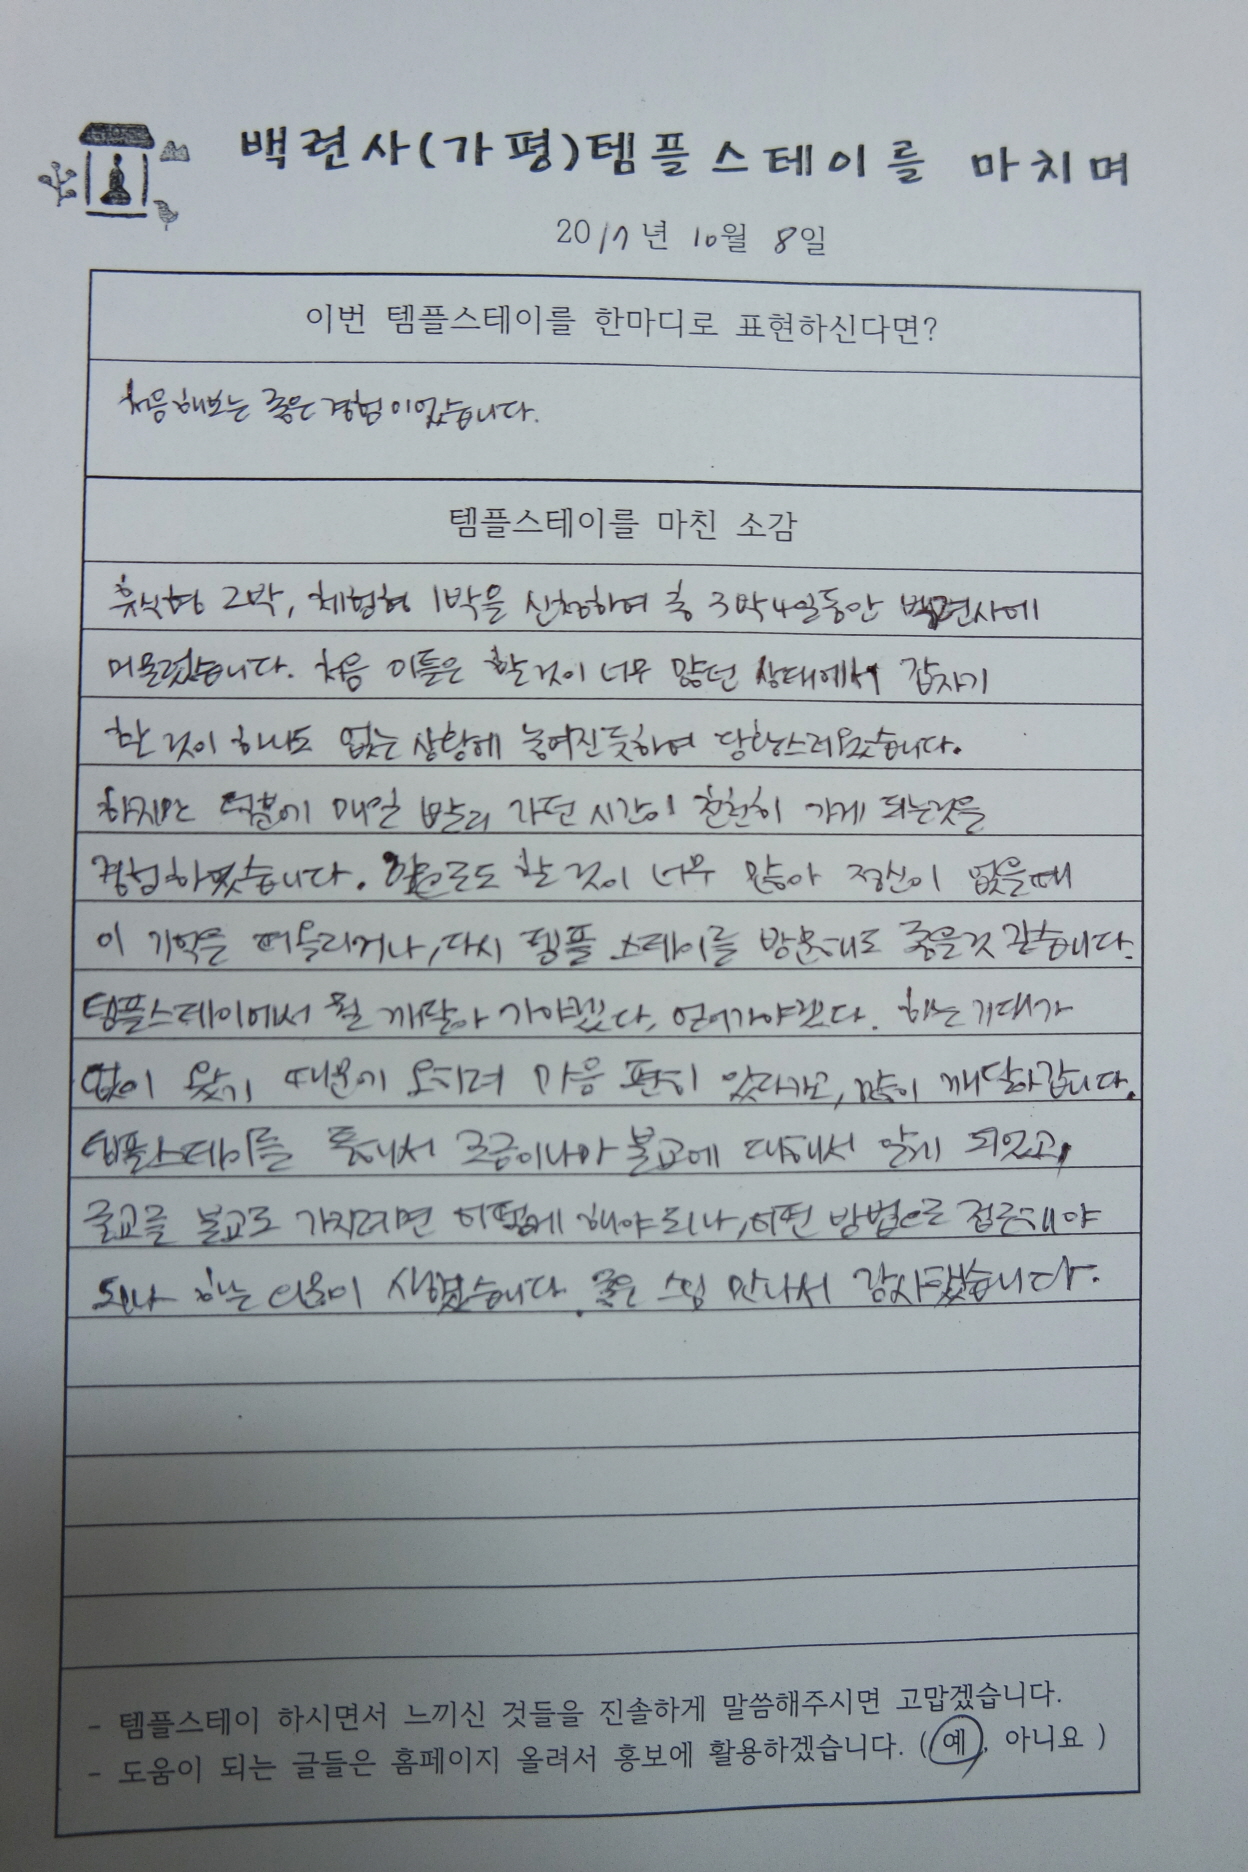 백련사(가평)템플스테이를 마치며
2017년 10월 8일
이번 템플스테이를 한마디로 표현하신다면?
처음해보는 좋은 경험이었습니다.
템플스테이를 마친 소감
휴식형 2박, 체험형 1박을 신청하여 총 3박4일동안 백련사에
머물렀습니다. 처음 이틀은 할것이 너무 많던 상태에서 갑자기
할 것이 하나도 없는 상황에 놓여진듯하여 당황스러웠습니다.
하지만 덕분에 매일 빨리 가던 시간이 천천히 가게 되는것을
경험하였습니다. 앞으로도 할 것이 너무 많아 정신이 없을때
이 기억을 떠올리거나, 다시 템플 스테이를 방문해도 좋을것 같습니다.
템플스테이에서 뭘 깨달아 가야겠다, 얻어가야겠다. 하는 기대가
없이 왔기 때문에 오히려 마음 편히 있다가고, 많이 깨달아갑니다.
템플스테이를 통해서 조금이나마 불교에 대해서 알게 되었고,
종교를 불교로 가지려면 어떻게 해야 되나, 어떤 방법으로 접근해야
되나 하는 의문이 생겼습니다. 좋은 스님 만나서 감사했습니다.
- 템플스테이 하시면서 느끼신 것들을 진솔하게 말씀해주시면 고맙겠습니다.
- 도움이 되는 글들은 홈페이지 올려서 홍보에 활용하겠습니다. ( 예, 아니요 )